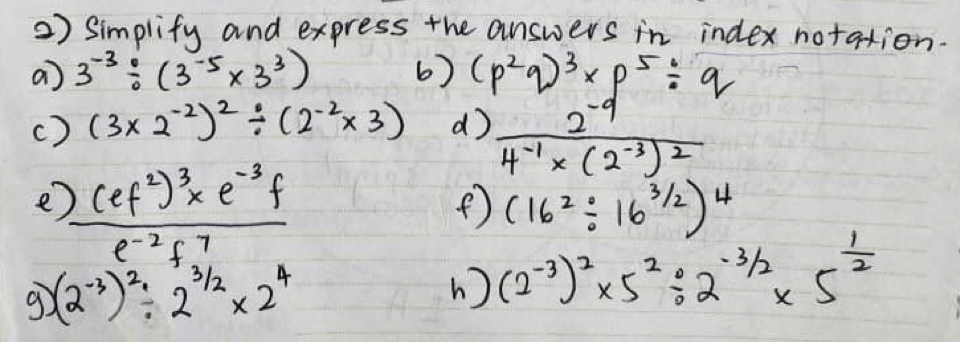 2) Simplify and express the answers in index notation.
a) 3⁻³ ÷ (3⁻⁵ × 3³) b) (p²q)³ × p⁵ ÷ q
c) (3 × 2⁻²)² ÷ (2⁻² × 3) d) 2⁻⁹ / 4⁻¹ × (2⁻³)²
e) (ef²)³ × e⁻³ f / e⁻² f⁷ f) (16² ÷ 16^3/2)⁴
g) (2⁻³)² ÷ 2^3/2 × 2⁴ h) (2⁻³)² × 5² ÷ 2^-3/2 × 5^1/2